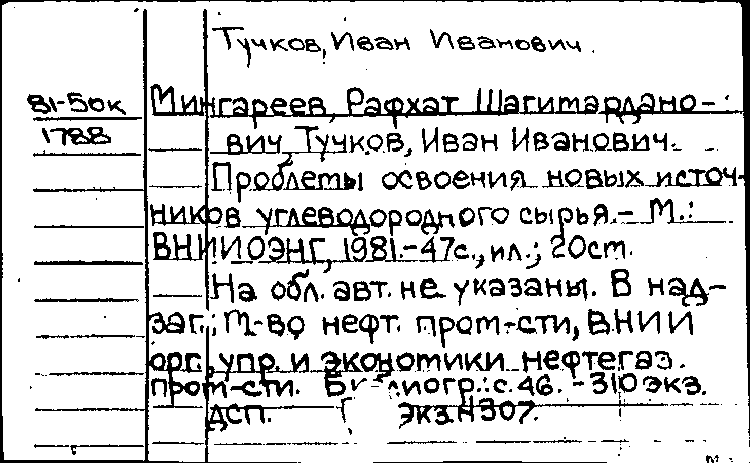 Тучков, Иван Иванович.
81-50к Мингареев, Рафхат Шагитардано-
1788 вич, Тучков, Иван Иванович.
Проблемы освоения новых источ-
ников углеводородного сырья. - М.:
ВНИИОЭНГ, 1981. - 47с., ил.; 20см.
На обл. авт. не указаны. В над-
заг.: М-во нефт. пром-сти, ВНИИ
орг., упр. и экономики нефтегаз.
пром-сти. Библиогр.: с. 46. - 310 экз.
ДСП. экз. N307.